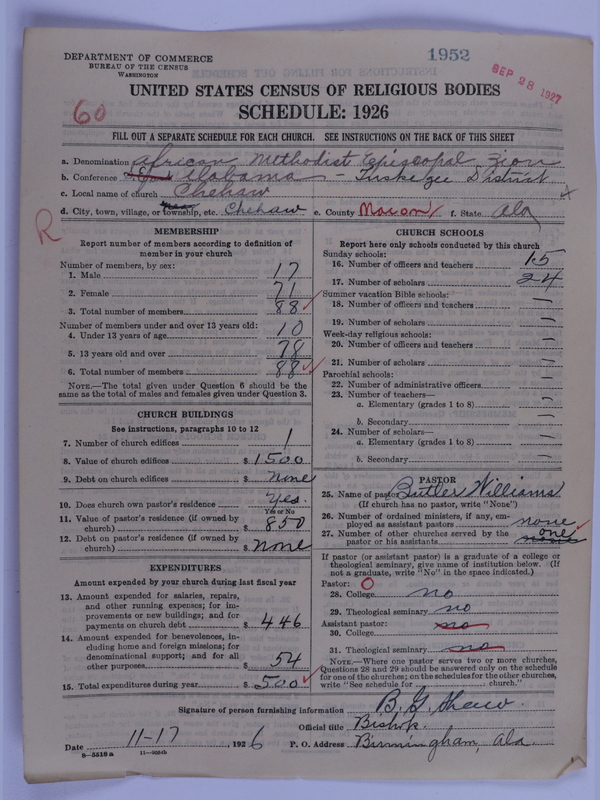 1952
SEP 28 1927
DEPARTMENT OF COMMERCE
BUREAU OF THE CENSUS
WASHINGTON
UNITED STATES CENSUS OF RELIGIOUS BODIES
60
SCHEDULE: 1926
FILL OUT A SEPARATE SCHEDULE FOR EACH CHURCH. SEE INSTRUCTIONS ON THE BACK OF THIS SHEET
a. Denomination African Methodist Episcopal Zion
b. Conference Alabama - Tuskegee District
c. Local name of church Chehaw
d. City, town, village, or township, etc. Chehaw e. County Macon f. State Ala
R
MEMBERSHIP
Report number of members according to definition of member in your church
Number of members, by sex:
1. Male 17
2. Female 71
3. Total number of members 88
Number of members under and over 13 years old:
4. Under 13 years of age 10
5. 13 years old and over 78
6. Total number of members 88
NOTE.—The total given under Question 6 should be the same as the total of males and females given under Question 3.
CHURCH BUILDINGS
See instructions, paragraphs 10 to 12
7. Number of church edifices 1
8. Value of church edifices $ 1500
9. Debt on church edifices $ None
10. Does church own pastor's residence Yes.
Yes or No
11. Value of pastor's residence (if owned by church) $ 850
12. Debt on pastor's residence (if owned by church) $ None
EXPENDITURES
Amount expended by your church during last fiscal year
13. Amount expended for salaries, repairs, and other running expenses; for improvements or new buildings; and for payments on church debt $ 446
14. Amount expended for benevolences, including home and foreign missions; for denominational support; and for all other purposes $ 54
15. Total expenditures during year $ 500
CHURCH SCHOOLS
Report here only schools conducted by this church
Sunday schools:
16. Number of officers and teachers 15
17. Number of scholars 24
Summer vacation Bible schools:
18. Number of officers and teachers —
19. Number of scholars —
Week-day religious schools:
20. Number of officers and teachers —
21. Number of scholars —
Parochial schools:
22. Number of administrative officers —
23. Number of teachers—
a. Elementary (grades 1 to 8) —
b. Secondary —
24. Number of scholars—
a. Elementary (grades 1 to 8) —
b. Secondary —
PASTOR
25. Name of pastor Butler Williams
(If church has no pastor, write "None")
26. Number of ordained ministers, if any, employed as assistant pastors none
27. Number of other churches served by the pastor or his assistants none
If pastor (or assistant pastor) is a graduate of a college or theological seminary, give name of institution below. (If not a graduate, write "No" in the space indicated.)
Pastor: O
28. College no
29. Theological seminary no
Assistant pastor: no
30. College
31. Theological seminary no
NOTE.—Where one pastor serves two or more churches, Questions 28 and 29 should be answered only on the schedule for one of the churches; on the schedules for the other churches, write "See schedule for church."
Signature of person furnishing information B. G. Shaw.
Official title Bishop.
Date 11-17, 1926 P. O. Address Birmingham, Ala.
8—5518 a